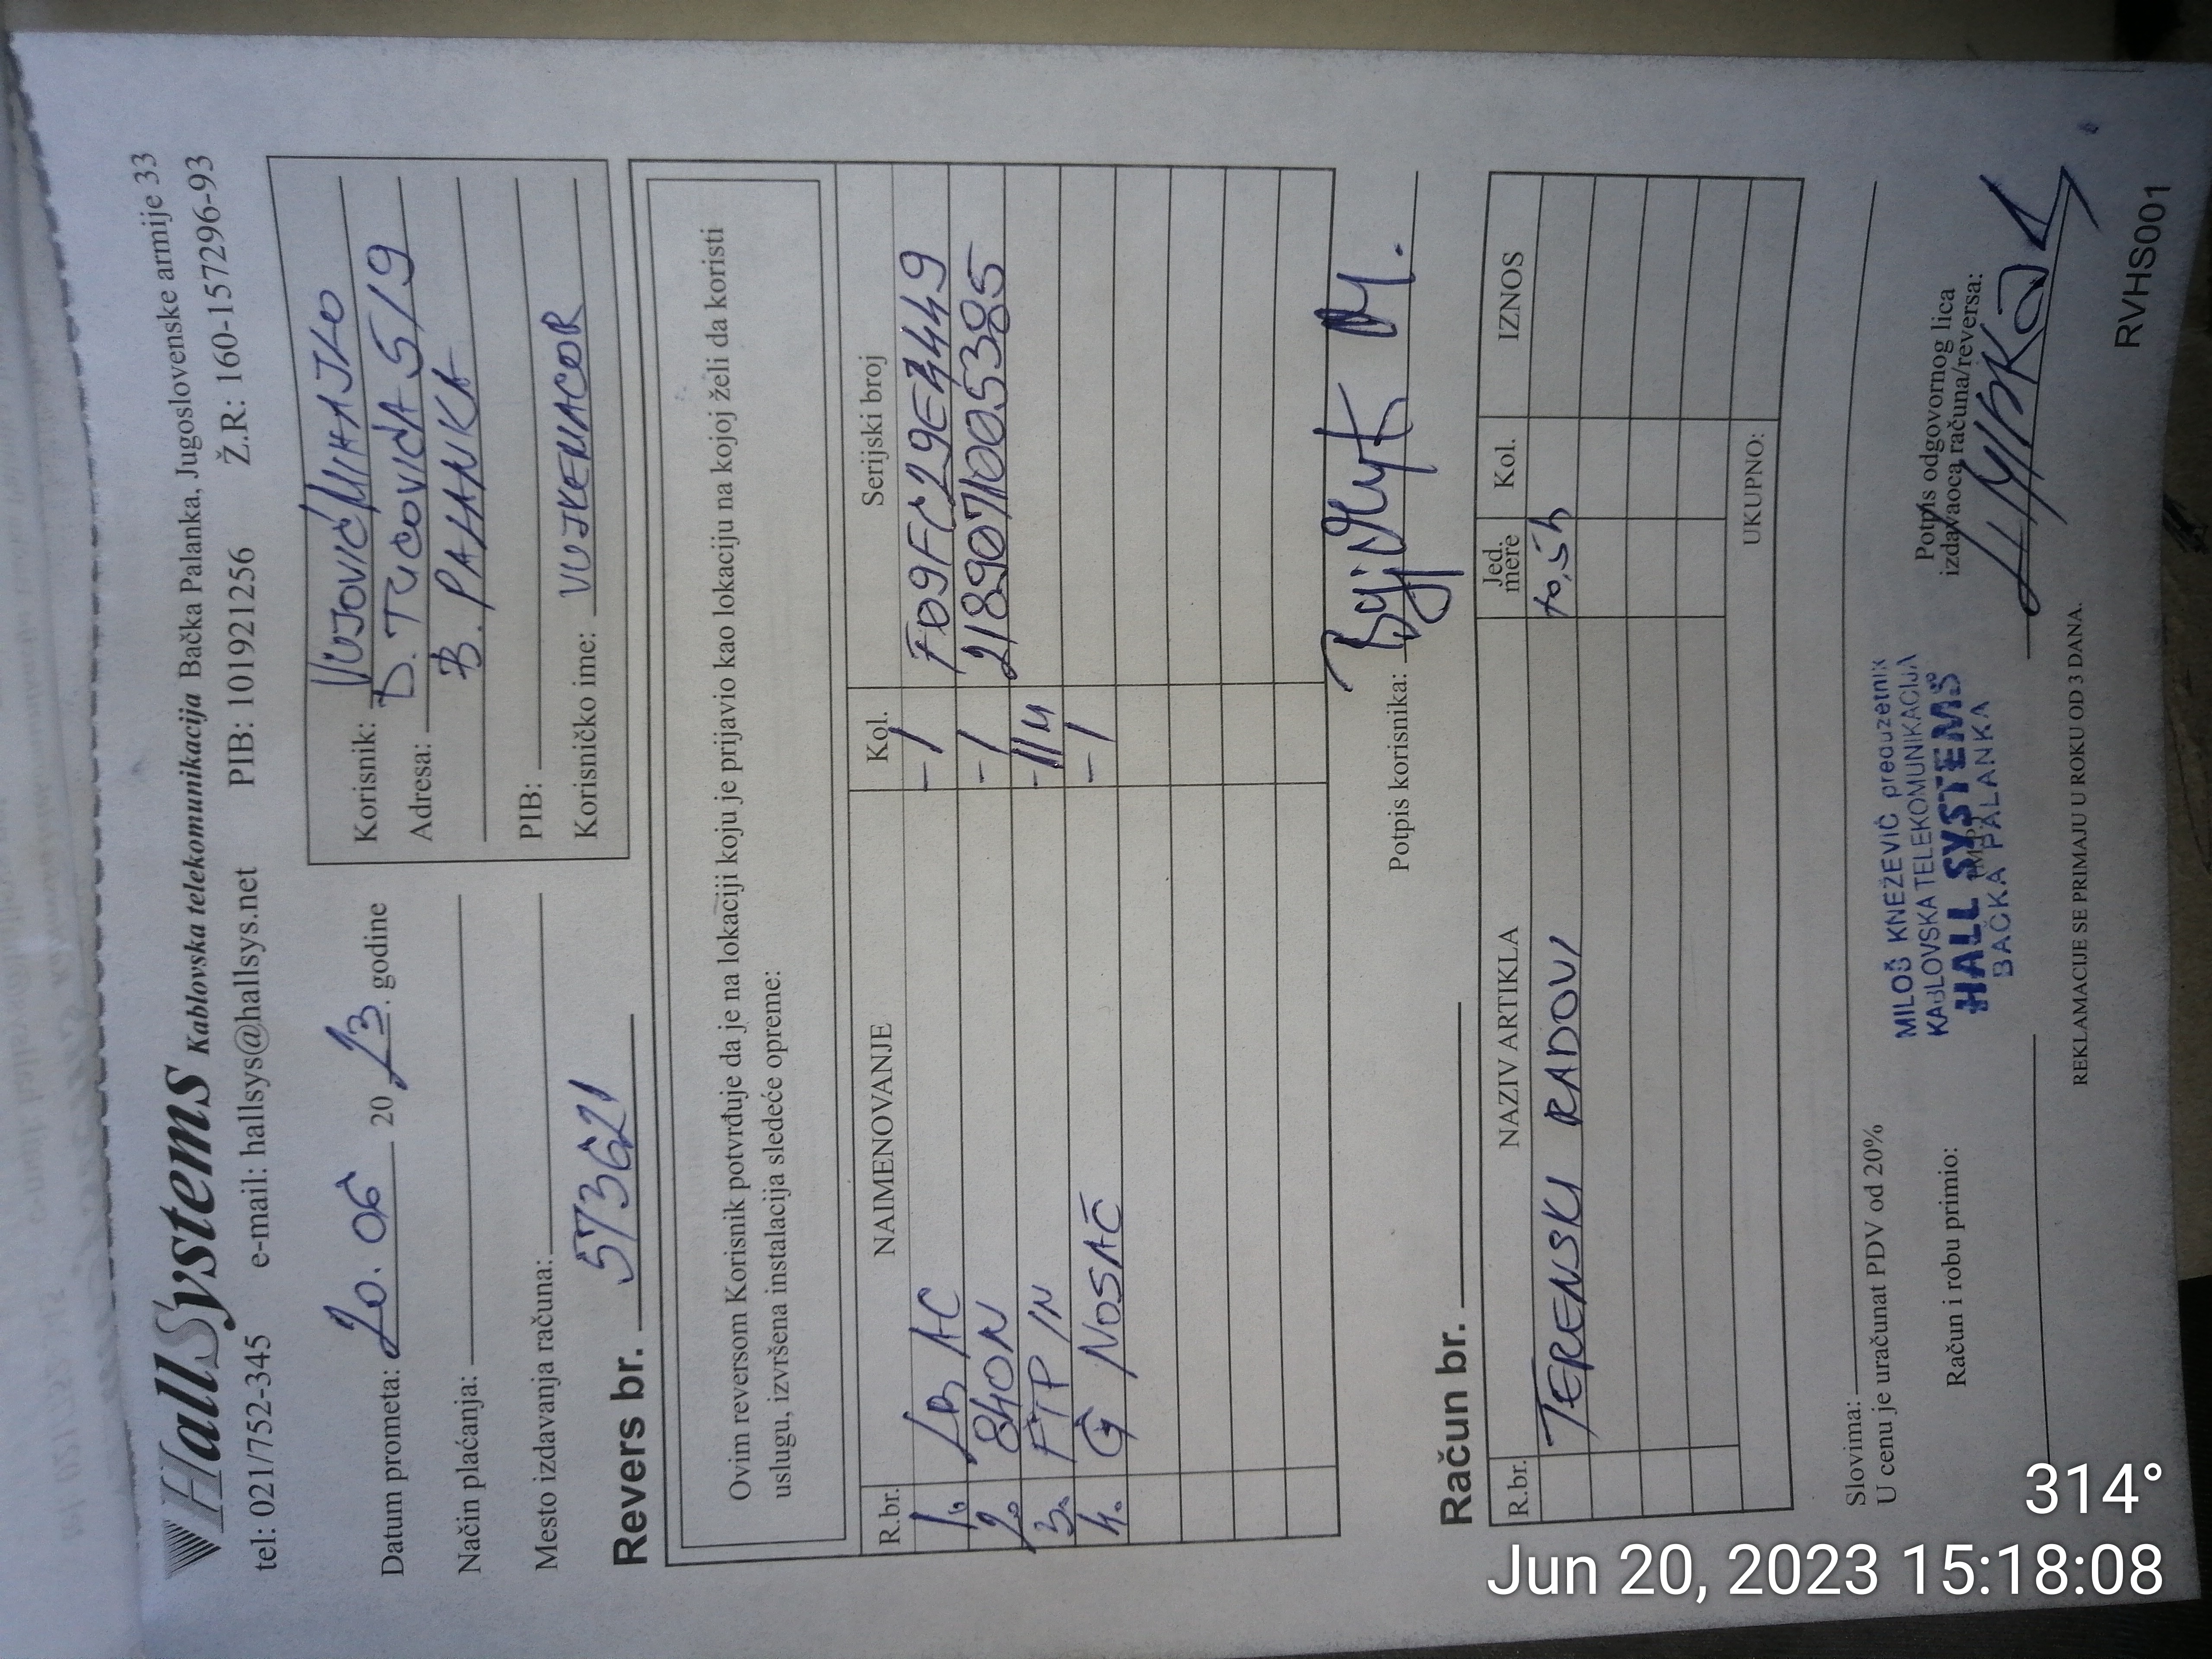 HallSystems Kablovska telekomunikacija Bačka Palanka, Jugoslovenske armije 33
tel: 021/752-345 e-mail: hallsys@hallsys.net PIB: 101921256 Ž.R: 160-157296-93
Datum prometa: 20.06 20 23. godine
Način plaćanja:
Mesto izdavanja računa:
Korisnik: VUJOVIĆ MIHAJLO
Adresa: D. TUCOVIĆA 5/9
B. PALANKA
PIB:
Korisničko ime:
Revers br. 573621
Ovim reversom Korisnik potvrđuje da je na lokaciji koju je prijavio kao lokaciju na kojoj želi da koristi
uslugu, izvršena instalacija sledeće opreme:
R.br. NAIMENOVANJE Kol. Serijski broj
1. LB AC -1
2. 840N -1 2189071005385
3. FTP IN
4. G NOSAČ -1
Potpis korisnika:
Račun br.
R.br. NAZIV ARTIKLA Jed. mere Kol. IZNOS
TERENSKI RADOVI
UKUPNO:
Slovima:
U cenu je uračunat PDV od 20%
Račun i robu primio:
MILOŠ KNEŽEVIĆ preduzetnik
KABLOVSKA TELEKOMUNIKACIJA
HALL SYSTEMS
BAČKA PALANKA
Potpis odgovornog lica
izdavaoca računa/reversa:
REKLAMACIJE SE PRIMAJU U ROKU OD 3 DANA.
RVHS001
314°
Jun 20, 2023 15:18:08